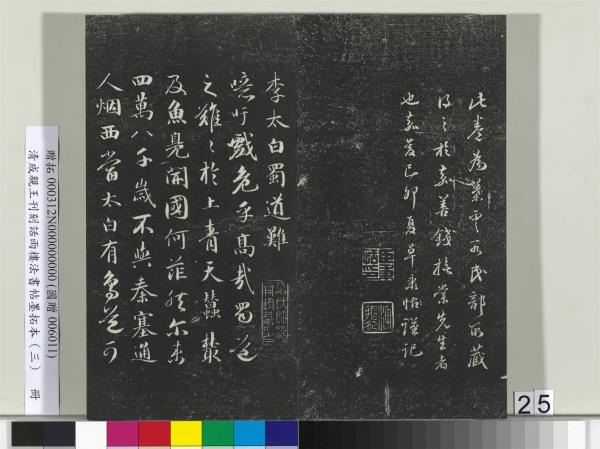 此卷為葉雲谷民部所藏
得之於嘉善錢棠先生者
也嘉慶己卯夏謹記
李太白蜀道難
噫吁戲危乎高哉蜀道
之難〻於上青天蠶叢
及魚鳧開國何茫然尔來
四萬八千歲不與秦塞通
人烟西當太白有鳥道可
贈拓 000312N000000000 (國贈 006011)
清成親王刊刻話雨樓法書帖墨拓本（三） 冊
25